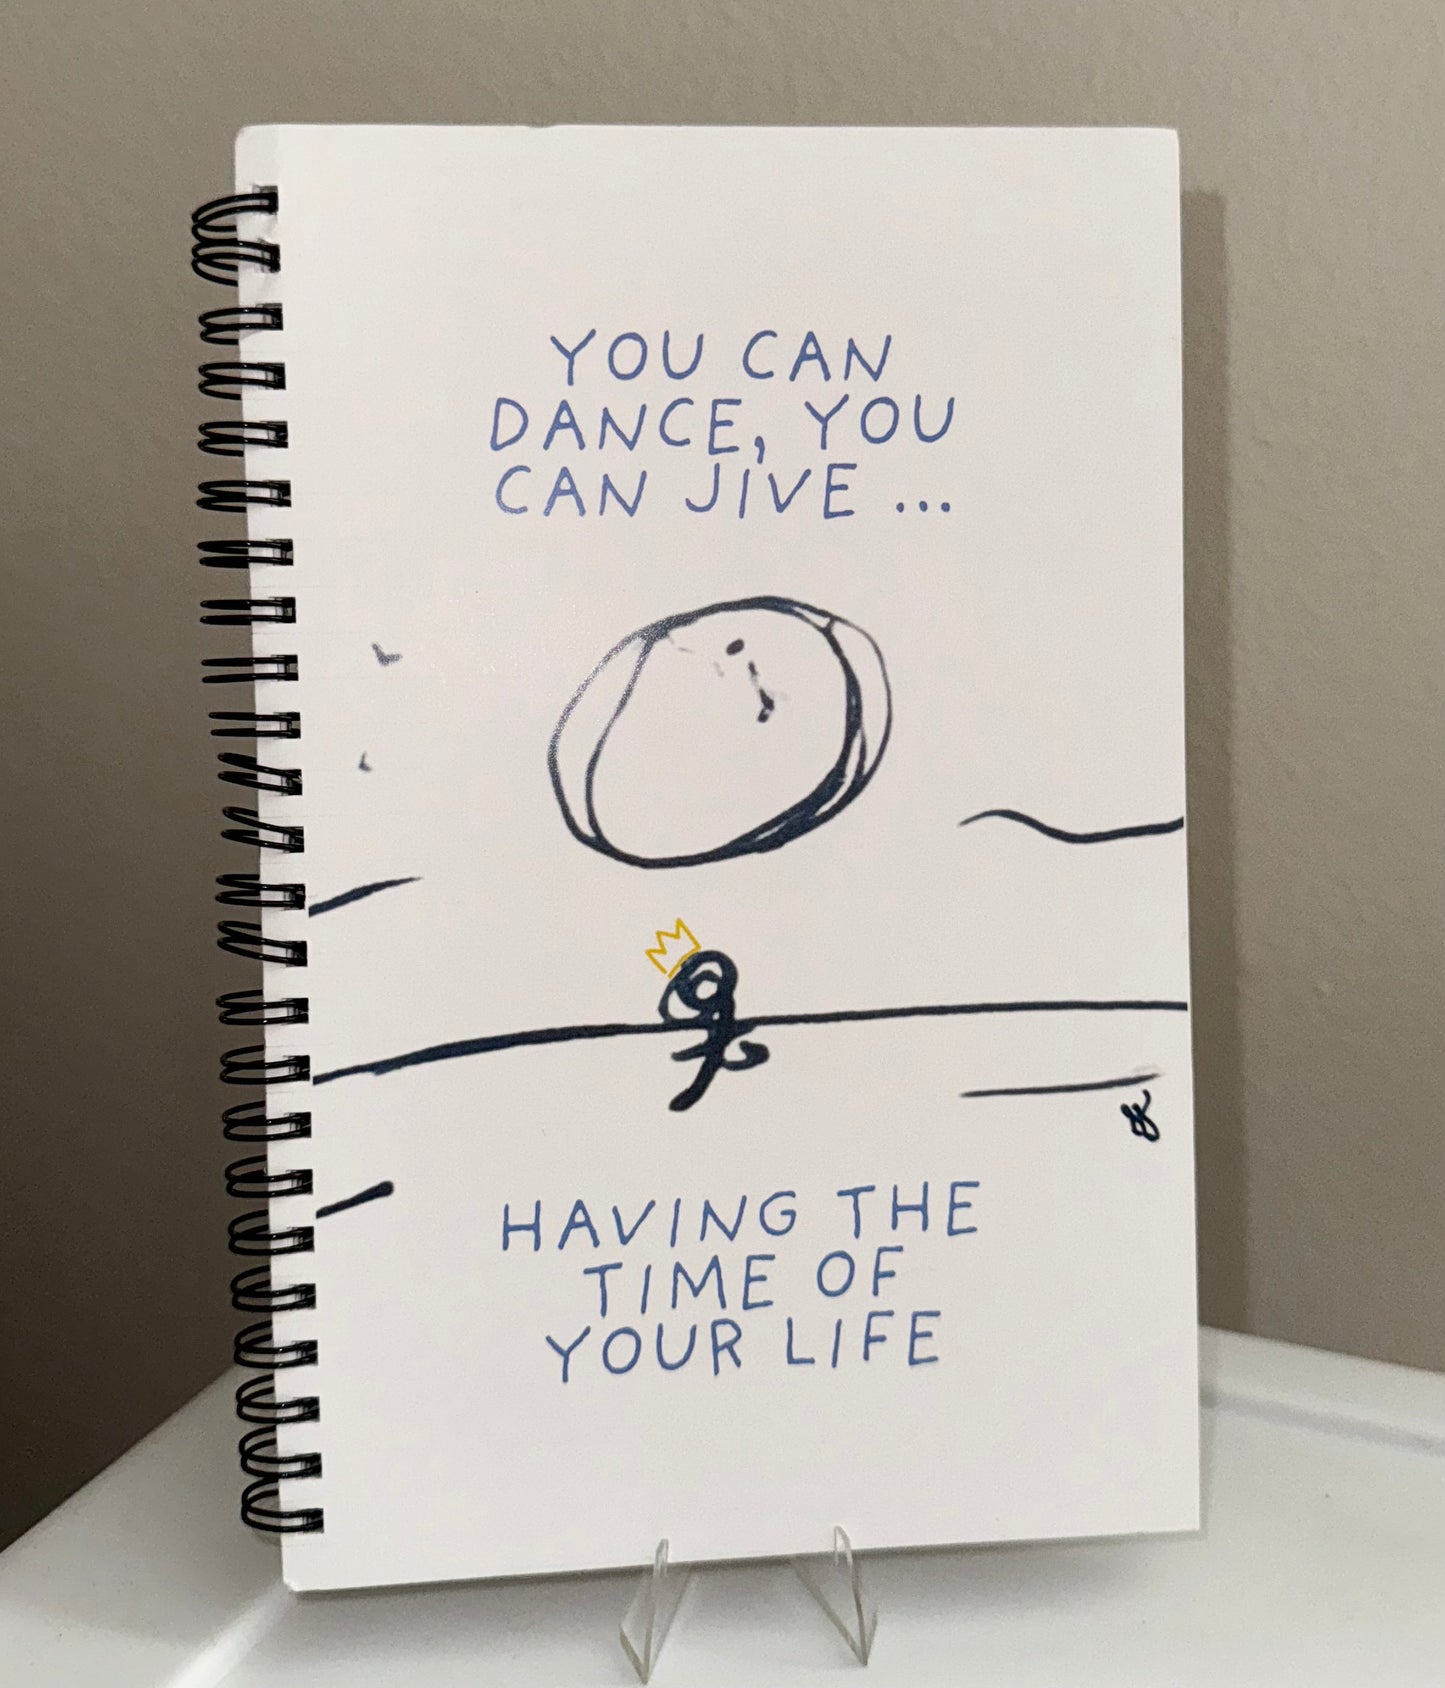 YOU CAN
DANCE, YOU
CAN JIVE ...
HAVING THE
TIME OF
YOUR LIFE